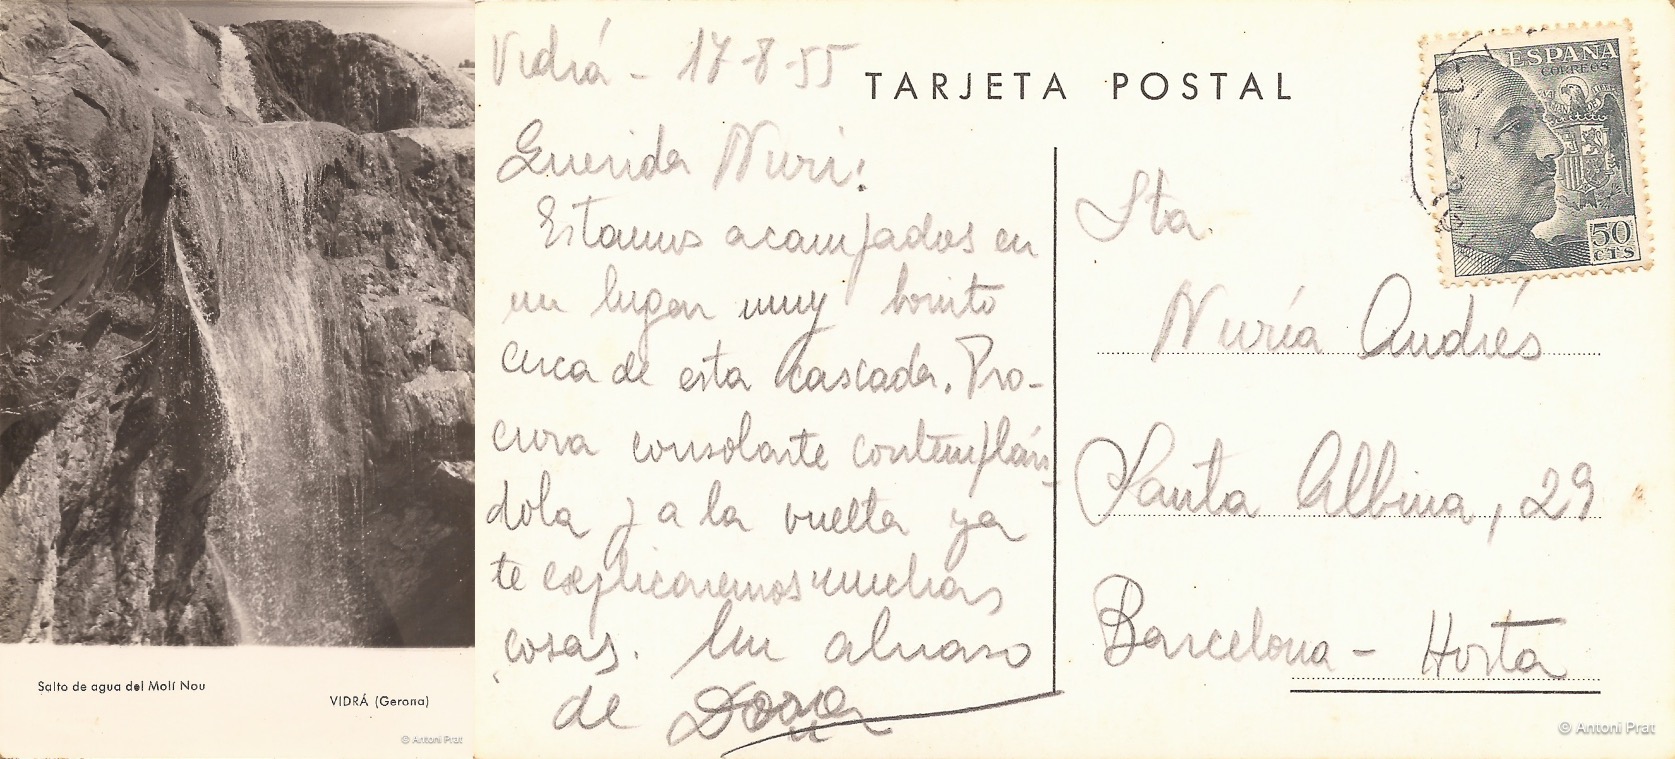 Salto de agua del Molí Nou
VIDRÁ (Gerona)
© Antoni Prat
Vidrá - 17-8-55
TARJETA POSTAL
Querida Nuri:
Estamos acampados en
un lugar muy bonito
cerca de esta cascada. Pro-
cura consolarte contemplán-
dola y a la vuelta ya
te explicaremos muchas
cosas. Un abrazo
de
ESPAÑA
CORREOS
50
CTS
Sta.
Nuría Andrés
Santa Albina, 29
Barcelona - Horta
© Antoni Prat